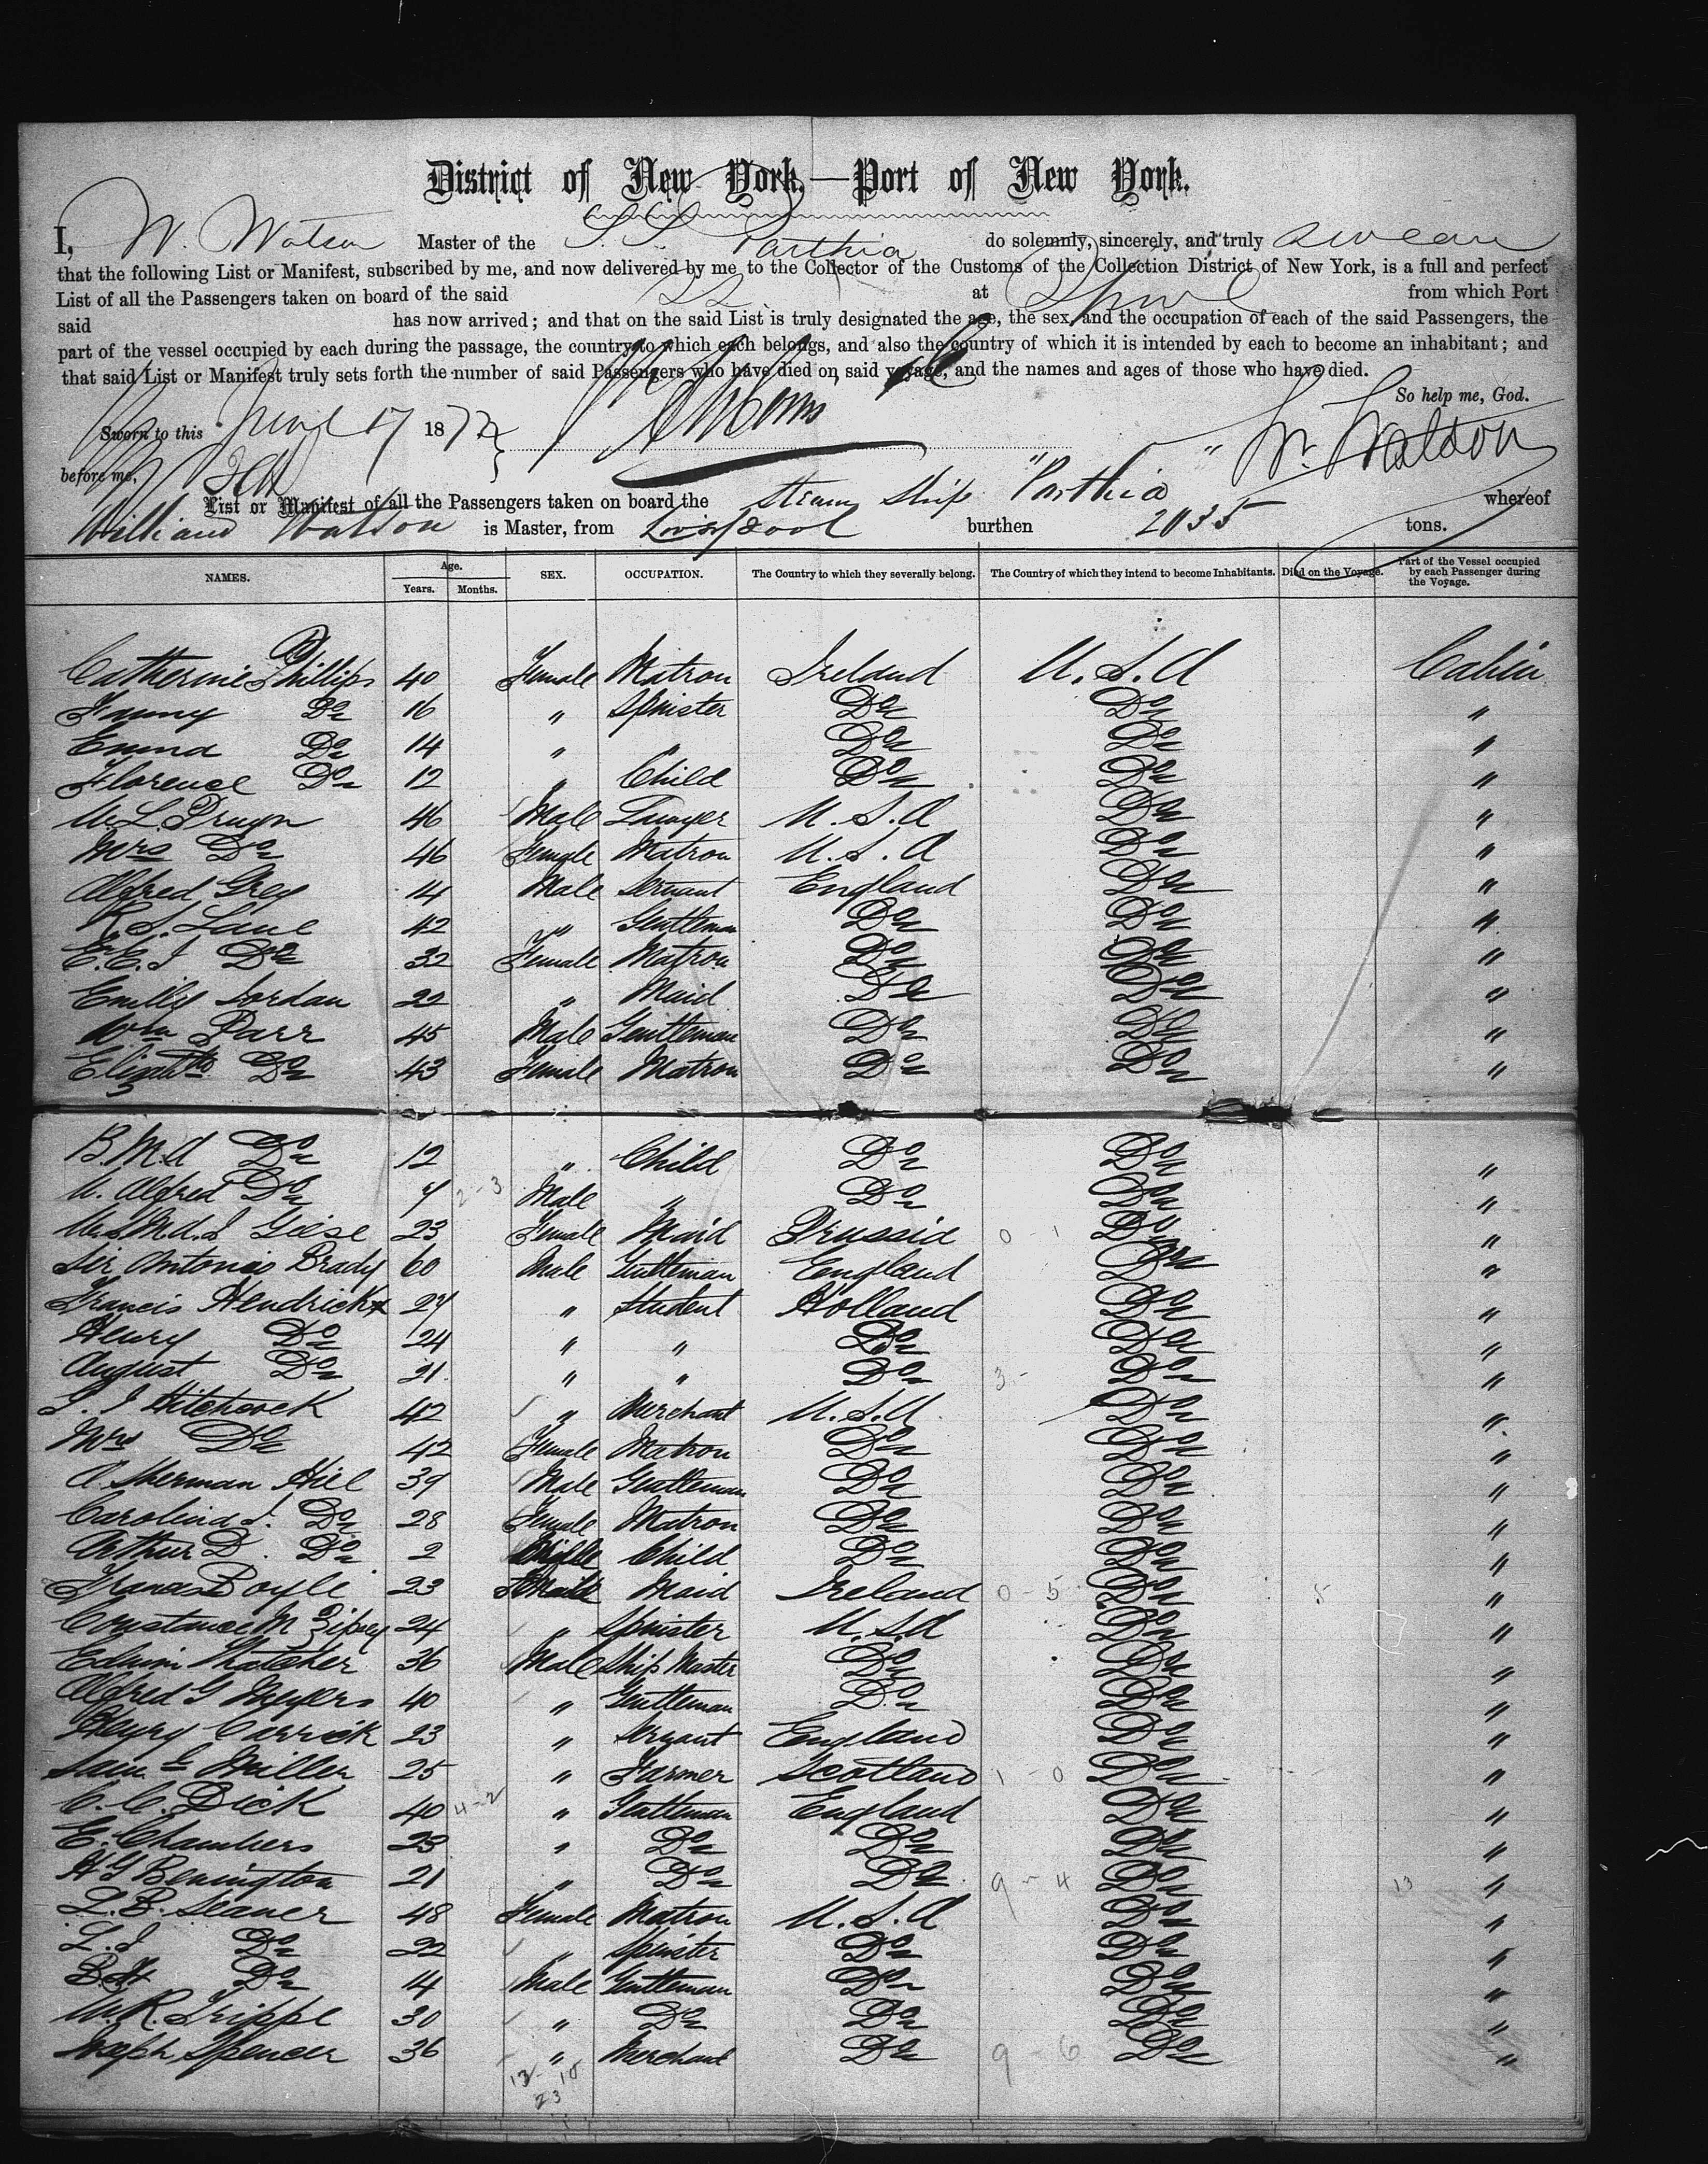 District of New York,—Port of New York.
I, W. Watson Master of the S.S. Parthia do solemnly, sincerely, and truly swear
that the following List or Manifest, subscribed by me, and now delivered by me to the Collector of the Customs of the Collection District of New York, is a full and perfect
List of all the Passengers taken on board of the said SS at Lpool from which Port
said has now arrived; and that on the said List is truly designated the age, the sex, and the occupation of each of the said Passengers, the
part of the vessel occupied by each during the passage, the country to which each belongs, and also the country of which it is intended by each to become an inhabitant; and
that said List or Manifest truly sets forth the number of said Passengers who have died on said voyage, and the names and ages of those who have died.
So help me, God.
Sworn to this 17 1872 W. Watson
before me,
List or Manifest of all the Passengers taken on board the Steam Ship "Parthia" whereof
William Watson is Master, from Liverpool burthen 2035 tons.
NAMES. Age. Years. Months. SEX. OCCUPATION. The Country to which they severally belong. The Country of which they intend to become Inhabitants. Died on the Voyage. Part of the Vessel occupied by each Passenger during the Voyage.
Catherine Phillips 40 Female Matron Ireland U.S.A Cabin
Fanny Do 16 " Spinster Do Do "
Emma Do 14 " " Do Do "
Florence Do 12 " Child Do Do "
W.L. Pruyn 46 Male Lawyer U.S.A Do "
Mrs Do 46 Female Matron U.S.A Do "
Alfred Grey 14 Male Servant England Do "
R.S. Lane 42 " Gentleman Do Do "
E.E.I Do 32 Female Matron Do Do "
Emily Jordan 22 " Maid Do Do "
Wm Parr 45 Male Gentleman Do Do "
Elizabth Do 43 Female Matron Do Do "
B.M.A Do 12 " Child Do Do "
W. Alfred Do 7 2-3 Male " Do Do "
Giese 23 Female Maid Prussia 0 - 1 Do "
Sir Antonio Brady 60 Male Gentleman England Do "
Francis Hendrickx 27 " Student Holland Do "
Henry Do 24 " " Do Do "
August Do 21 " " Do 3 - Do "
Hitchcock 42 " Merchant U.S.A. Do "
Mrs Do 42 Female Matron Do Do "
A. Sherman Hill 39 Male Gentleman Do Do "
Carolina S. Do 28 Female Matron Do Do "
Arthur D. Do 2 Child Do Do "
Frances Boyle 23 Maid Ireland 0 - 5 Do 5 "
Constance M 24 " Spinster U.S.A Do "
Edwin Thatcher 36 Male Ship Master Do Do "
Alfred G Meyers 40 " Gentleman Do Do "
Henry Carrick 23 " Servant England Do "
Saml E Miller 25 " Farmer Scotland 1 - 0 Do "
C.C. Dick 40 4-2 " Gentleman England Do "
E. Chambers 23 " Do Do Do "
H G Benington 21 " Do Do 9 - 4 Do 13 "
L.B. Seaner 48 Female Matron U.S.A Do "
L.I Do 22 " Spinster Do Do "
B.H Do 14 Male Gentleman Do Do "
W.R. Trippe 30 " Do Do Do "
Joseph Spencer 36 " Merchant Do 9 - 6 Do "
13 - 10
23